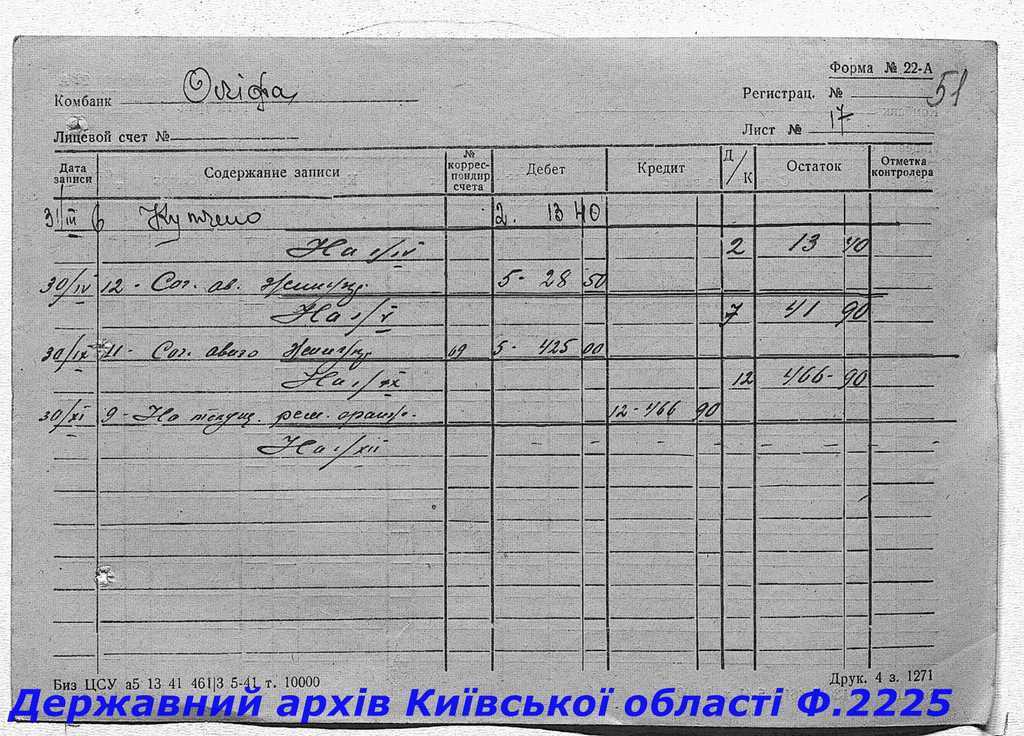 Форма № 22-А
Комбанк Оліфа
Регистрац. № 51
Лицевой счет №
Лист № 17
Дата записи Содержание записи № коррес-пондир счета Дебет Кредит Д/К Остаток Отметка контролера
31/III 6 Куплено 2. 13 40
На 1/IV 2 13 40
30/IV 12 - Сог. ав. 5- 28 50
На 1/V 7 41 90
30/IX 11 - Сог. 69 5- 425 00
На 1/XX 12 466- 90
30/XI 9 - На 12-466 90
На 1/XII - - - - - - - -
Биз ЦСУ а5 13 41 461|3 5-41 т. 10000
Друк. 4 з. 1271
Державний архів Київської області Ф.2225